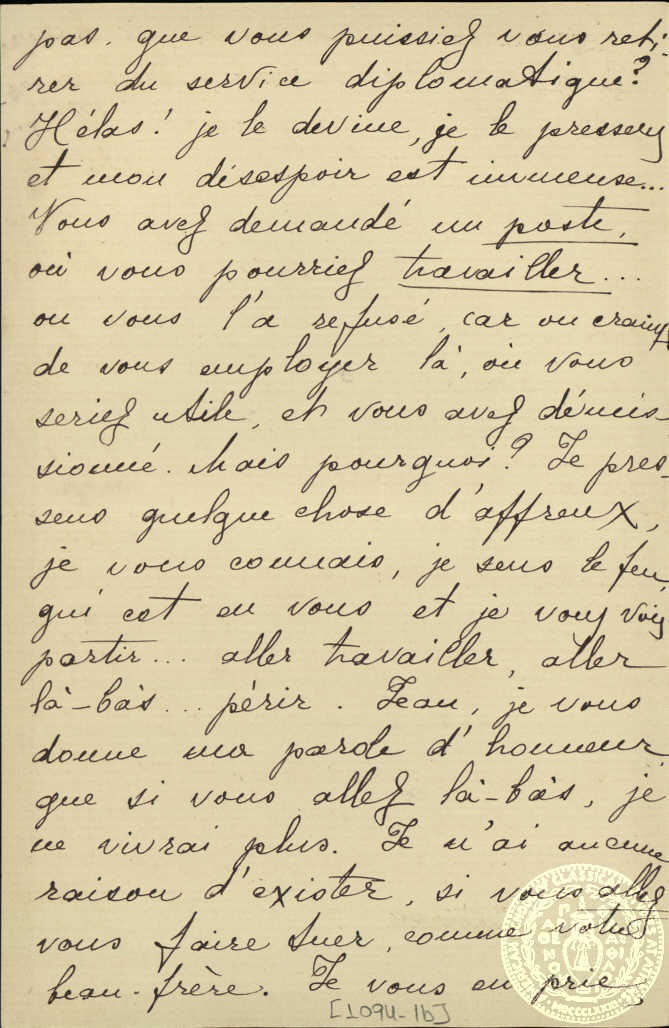 pas. que vous puissiez vous reti-
rer du service diplomatique?
Hélas! je le devine, je le pressens
et mon désespoir est immense...
Vous avez demandé un poste,
où vous pourriez travailler...
on vous l'a refusé, car on craint
de vous employer là, où vous
seriez utile, et vous avez démis-
sionné. Mais pourquoi? Je pres-
sens quelque chose d'affreux,
je vous connais, je sens le feu,
qui est en vous et je vous vois
partir... aller travailler, aller
là-bas... périr. Jean, je vous
donne ma parole d'honneur,
que si vous allez là-bàs, je
ne vivrai plus. Je n'ai aucune
raison d'exister, si vous allez
vous faire tuer, comme votre
beau-frère. Je vous en prie,
[1094-1b]